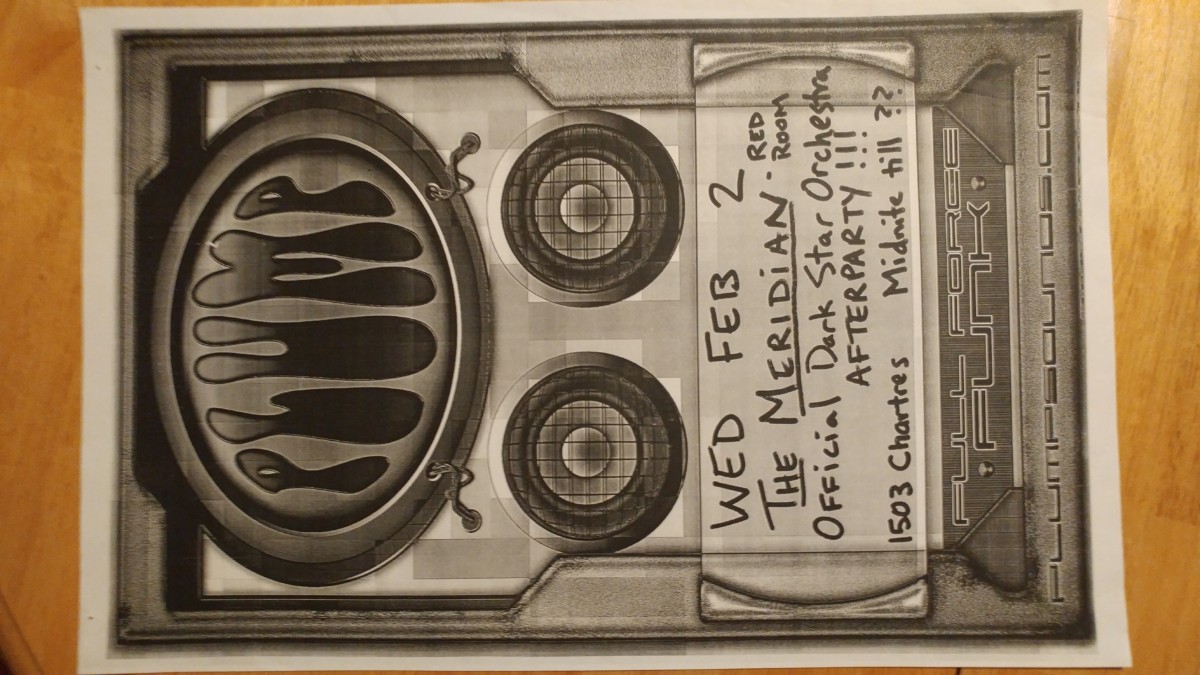 PLUMP
WED FEB 2
THE MERIDIAN - RED ROOM
Official Dark Star Orchestra
AFTERPARTY !!!
1503 Chartres Midnite till ??
FULL FORCE
FUNK
PLUMPSOUNDS.COM